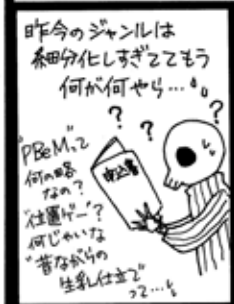 昨今のジャンルは
細分化しすぎててもう
何が何やら…
?
?
?
"PBeM"って
何の略
なの?
"位置ゲー"?
何じゃいな
"昔ながらの
生乳仕立て"
って…
申込書